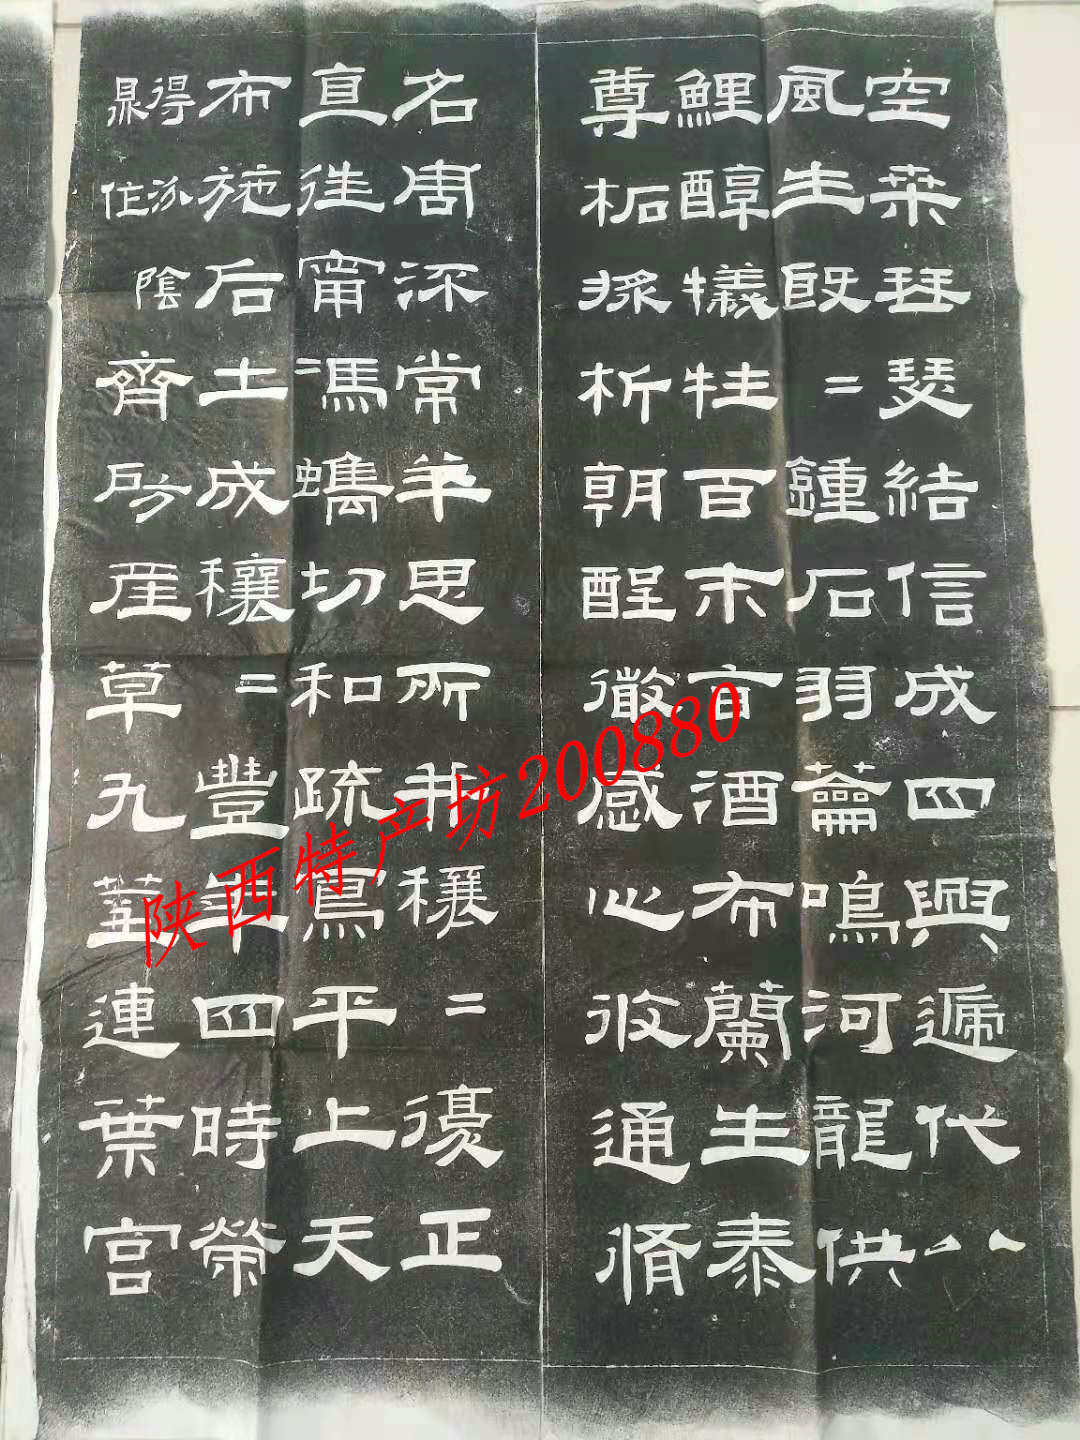 空桑琴瑟結信成四興遞代八
風生殷=鍾石羽籥鳴河龍供
鯉醇犧牲百末旨酒布蘭生泰
尊柘漿析朝酲微感心攸通脩
名周流常羊思所并穰=復正
直往甯馮蠵切和疏寫平上天
布施后土成穰=豐年四時榮
得鼎汾作陰
齊房產草九莖連葉宮
陕西特产坊200880